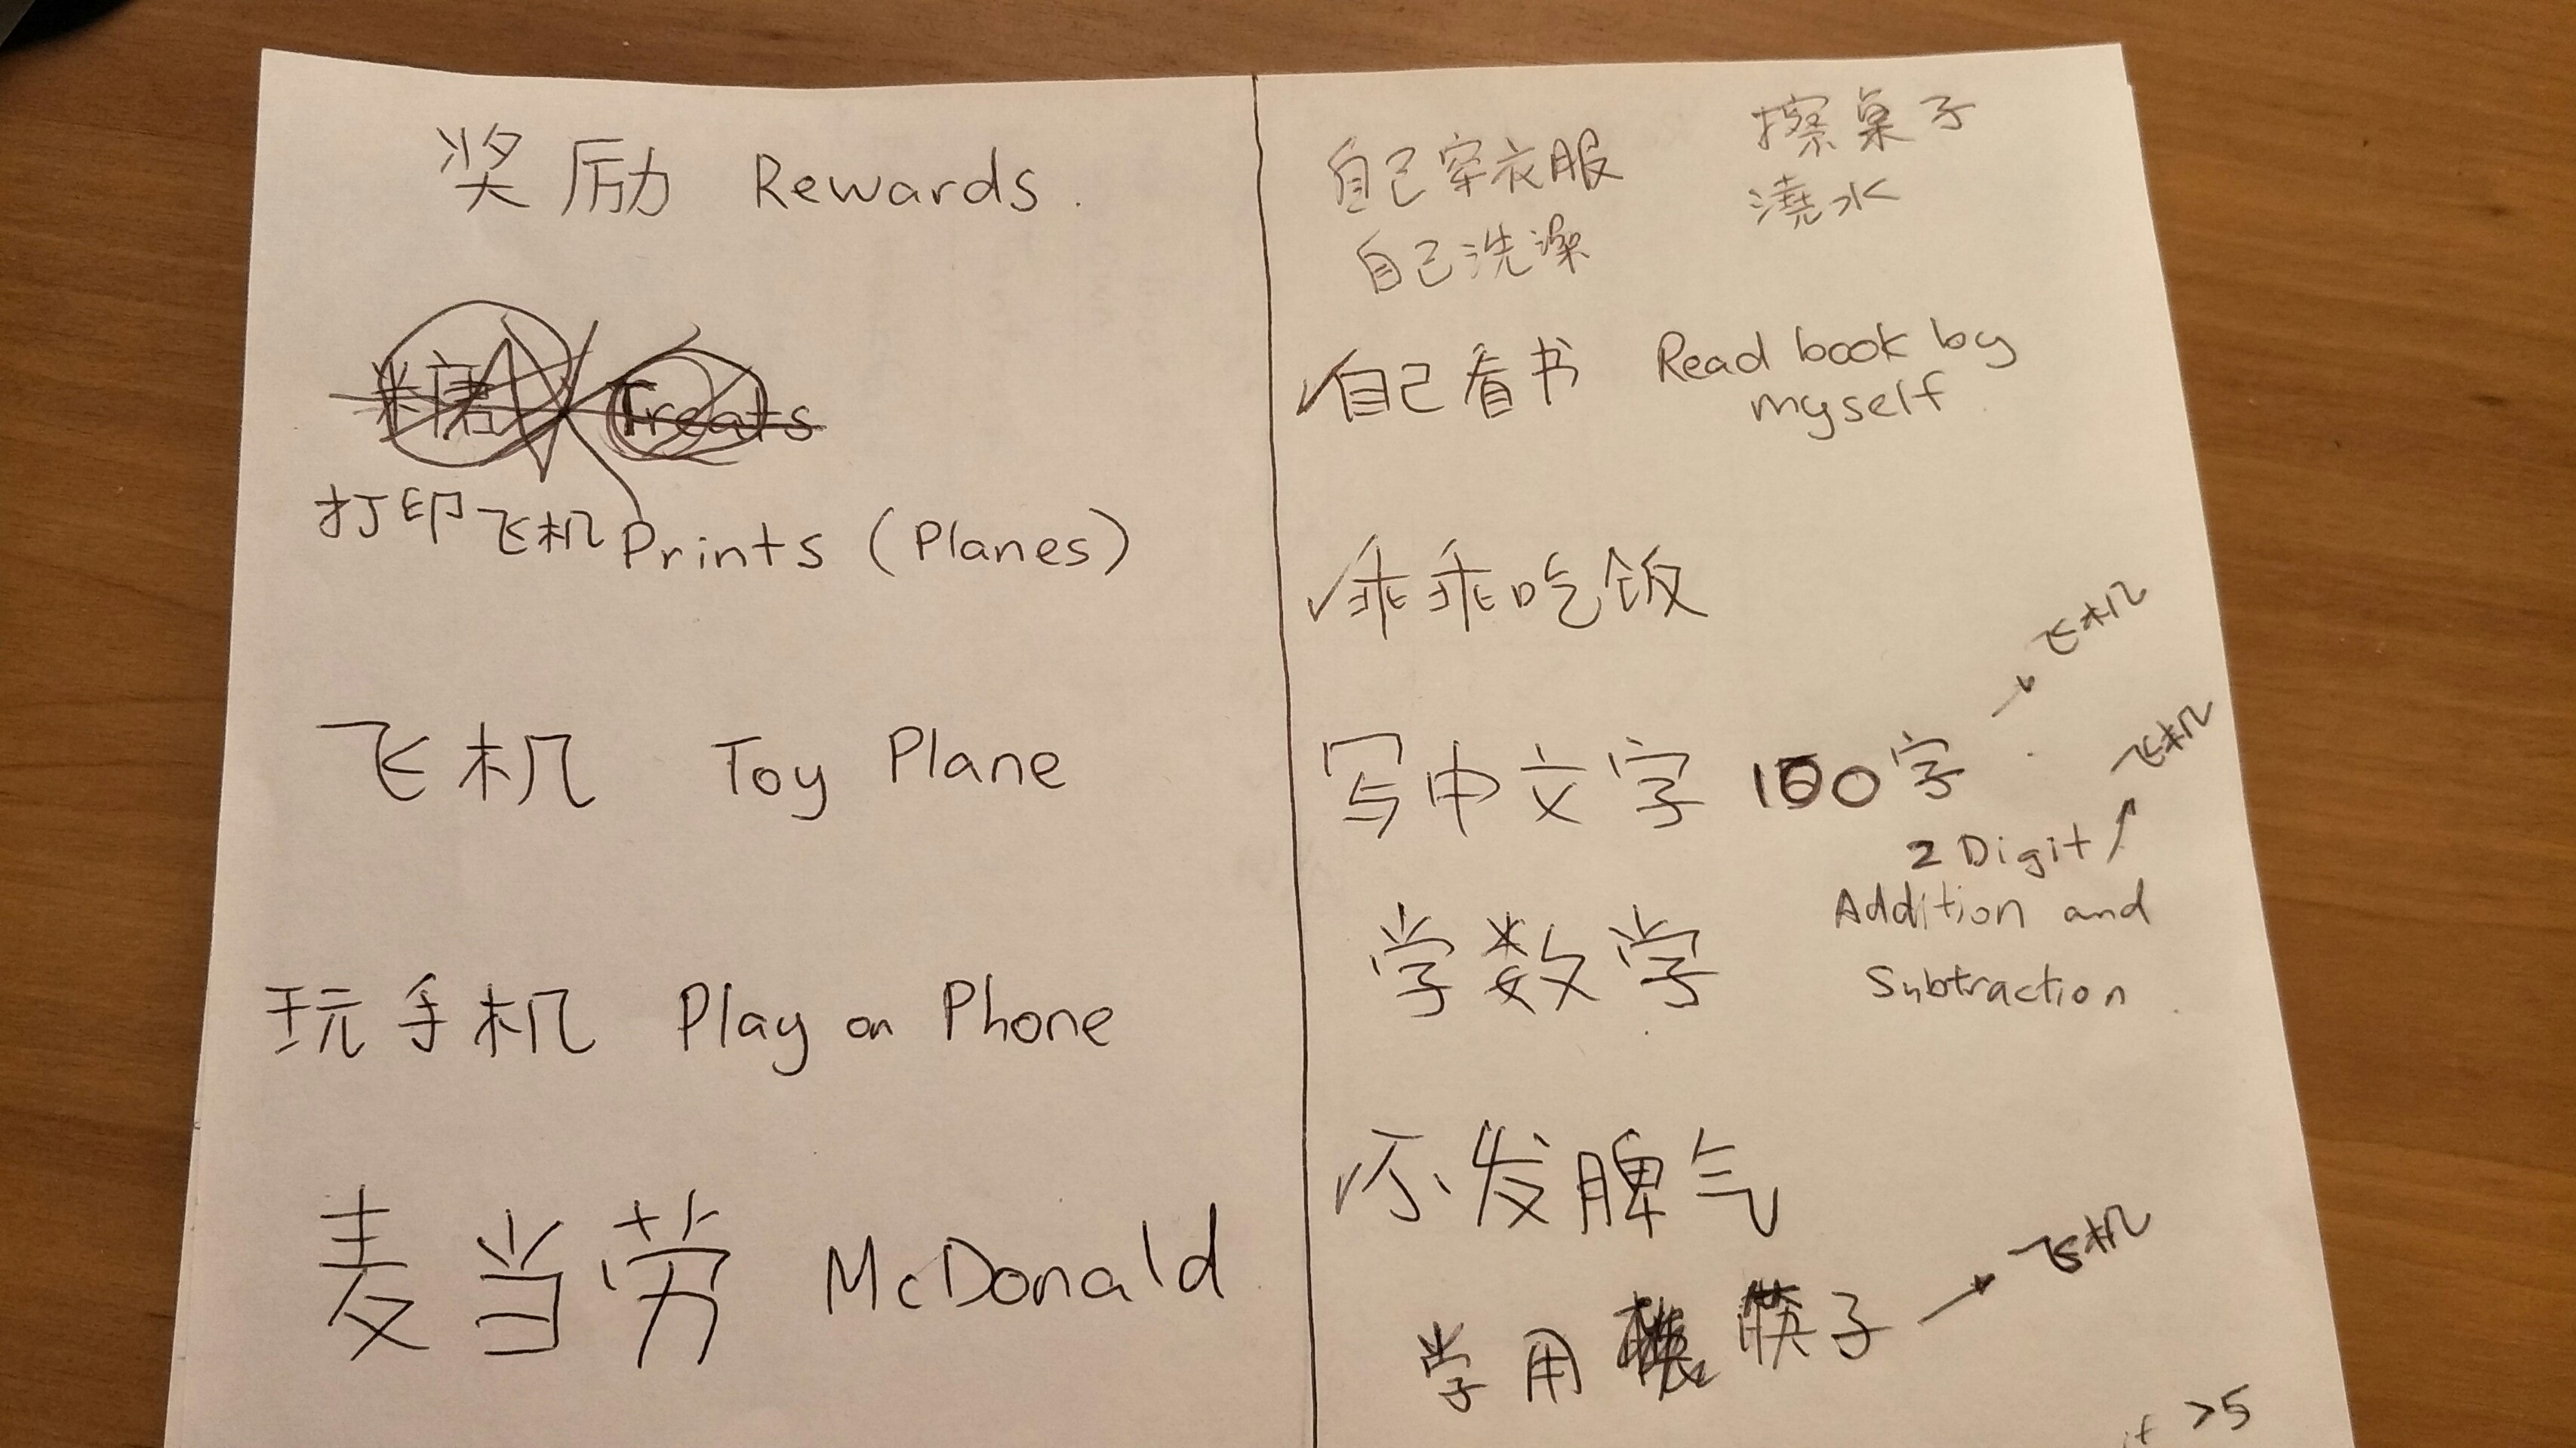 奖励 Rewards.
糖 Treats
打印飞机 Prints (Planes)
飞机 Toy Plane
玩手机 Play on Phone
麦当劳 McDonald
自己穿衣服
自己洗澡
擦桌子
澆水
✓自己看书 Read book by
myself
✓乖乖吃饭
写中文字 100字 → 飞机
学数学 2 Digit → 飞机
Addition and
Subtraction
✓不发脾气
学用 筷子 → 飞机
>5